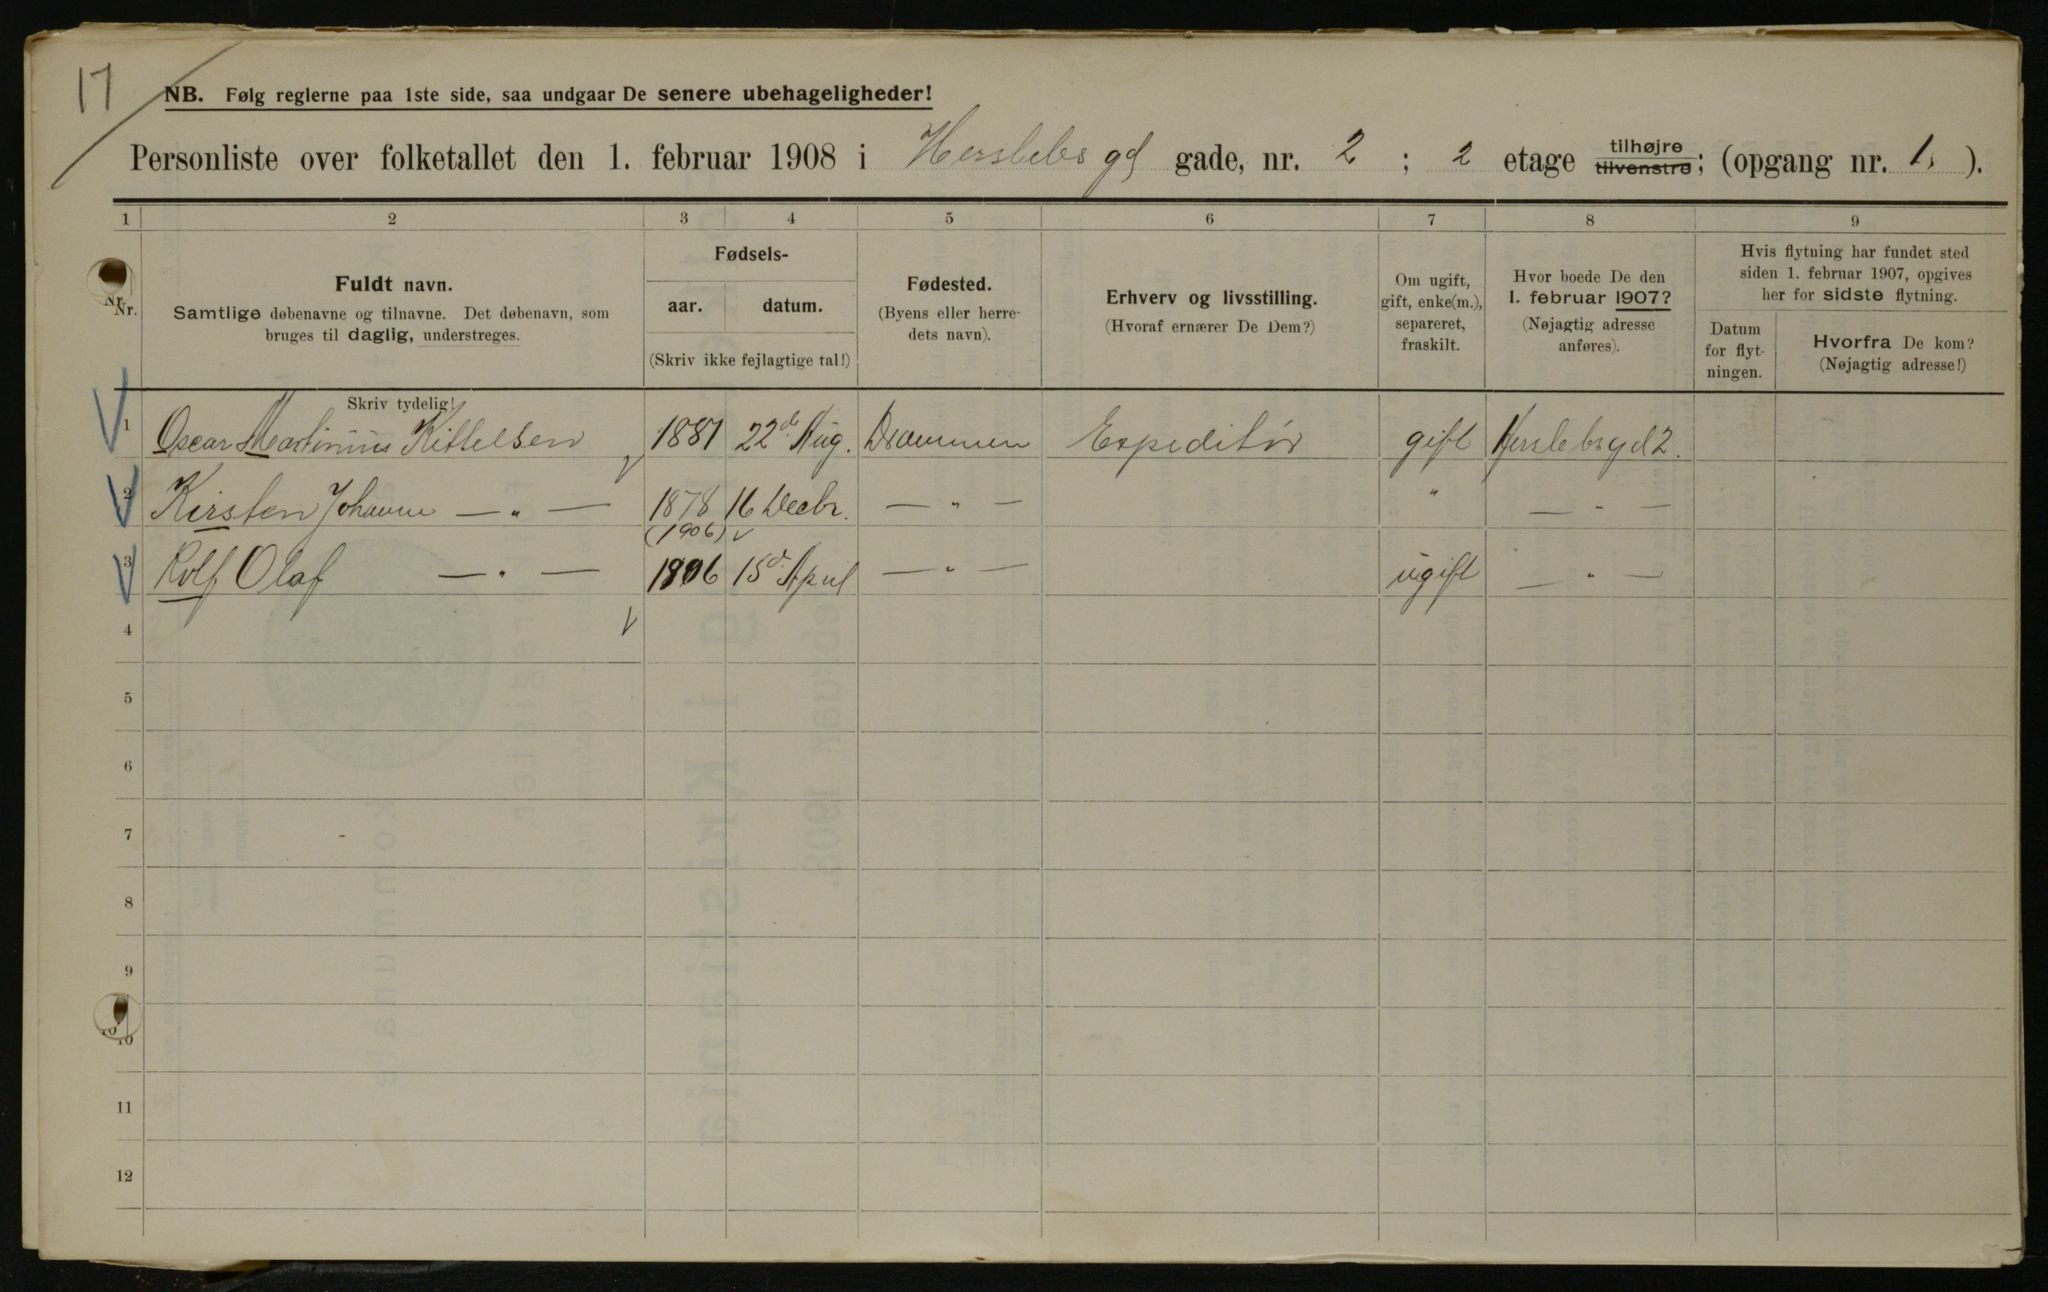 17
NB. Følg reglerne paa 1ste side, saa undgaar De senere ubehageligheder!
Personliste over folketallet den 1. februar 1908 i Herslebs gd gade, nr. 2 ; 2 etage tilhøjre tilvenstre; (opgang nr. 1. ).
1 2 3 4 5 6 7 8 9
Nr. Nr.
Fuldt navn.
Samtlige døbenavne og tilnavne. Det døbenavn, som
bruges til daglig, understreges.
Skriv tydelig!
Fødsels-
aar. datum.
(Skriv ikke fejlagtige tal!)
Fødested.
(Byens eller herre-
dets navn).
Erhverv og livsstilling.
(Hvoraf ernærer De Dem?)
Om ugift,
gift, enke(m.),
separeret,
fraskilt.
Hvor boede De den
1. februar 1907?
(Nøjagtig adresse
anføres).
Hvis flytning har fundet sted
siden 1. februar 1907, opgives
her for sidste flytning.
Datum
for flyt-
ningen.
Hvorfra De kom?
(Nøjagtig adresse!)
1 Oscar Martinius Kittelsen 1881 22d Aug. Drammen Expeditør gift Herslebsgd 2.
2 Kirsten Johanne — „ — 1878 16 Decbr. — „ — „ — „ —
(1906)
3 Rolf Olaf — „ — 1806 15d April — „ — ugift — „ —
4
5
6
7
8
9
10
11
12